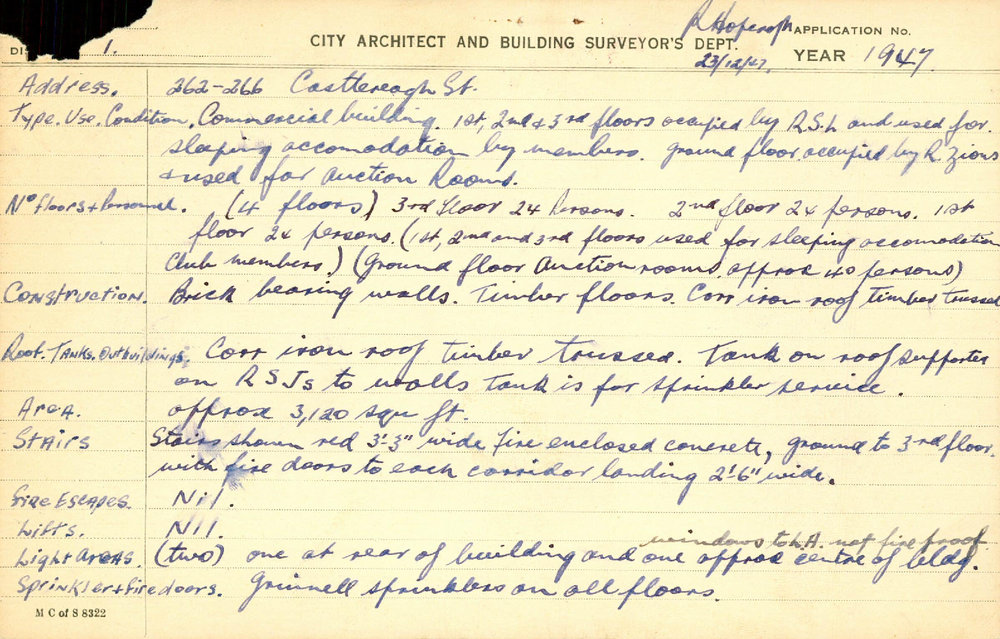 R Hopcroft APPLICATION No.
DIS 1. CITY ARCHITECT AND BUILDING SURVEYOR'S DEPT. 23/12/47. YEAR 1947.
Address. 262-266 Castlereagh St.
Type. Use. Condition. Commercial building. 1st, 2nd & 3rd floors occupied by R.S.L and used for
sleeping accomodation by members. ground floor occupied by R. Zions
& used for Auction Rooms.
No floors + Personnel. (4 floors) 3rd floor 24 Persons. 2nd floor 24 persons. 1st
floor 24 persons. (1st, 2nd and 3rd floors used for sleeping accomodation
Club members.) (Ground floor Auction rooms. approx 40 persons)
Construction. Brick bearing walls. Timber floors. Corr iron roof timber trussed
Roof. Tanks. Outbuildings. Corr iron roof timber trussed. Tank on roof supported
on R S Js to walls Tank is for sprinkler service.
Area. approx 3,120 squ ft.
Stairs Stairs shown red 3'-3" wide Fire enclosed concrete, ground to 3rd floor.
with fire doors to each corridor landing 2'-6" wide.
Fire Escapes. Nil.
Lifts. Nil.
windows to L.A. not fire proof
Light Areas. (two) one at rear of building and one approx centre of bldg.
Sprinkler + fire doors. Grinnell sprinklers on all floors.
M C of S 8322